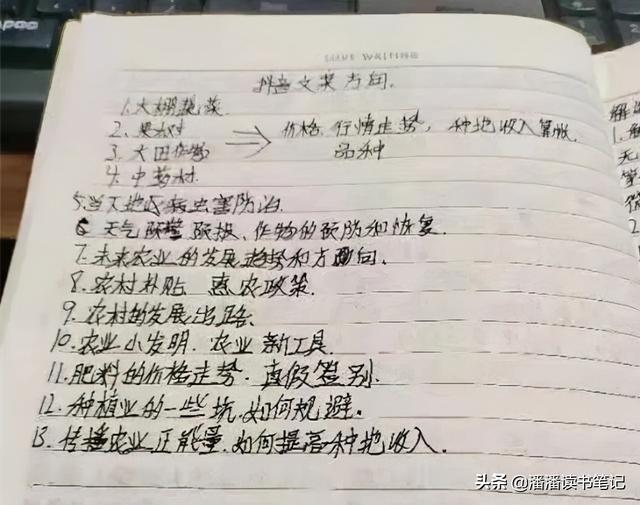 抖音文案方向.
1.大棚蔬菜
2.果树
3.大田作物
4.中药材
价格,行情走势,种地收入算账.
品种
5.当下地区病虫害防治.
6 天气 预报、作物的预防和恢复.
7.未来农业的发展趋势和方向.
8.农村补贴 惠农政策.
9.农村的发展出路.
10.农业小发明.农业新工具.
11.肥料的价格走势.真假鉴别.
12.种植业的一些坑.如何规避.
13.传播农业正能量.如何提高种地收入.
头条 @潘潘读书笔记